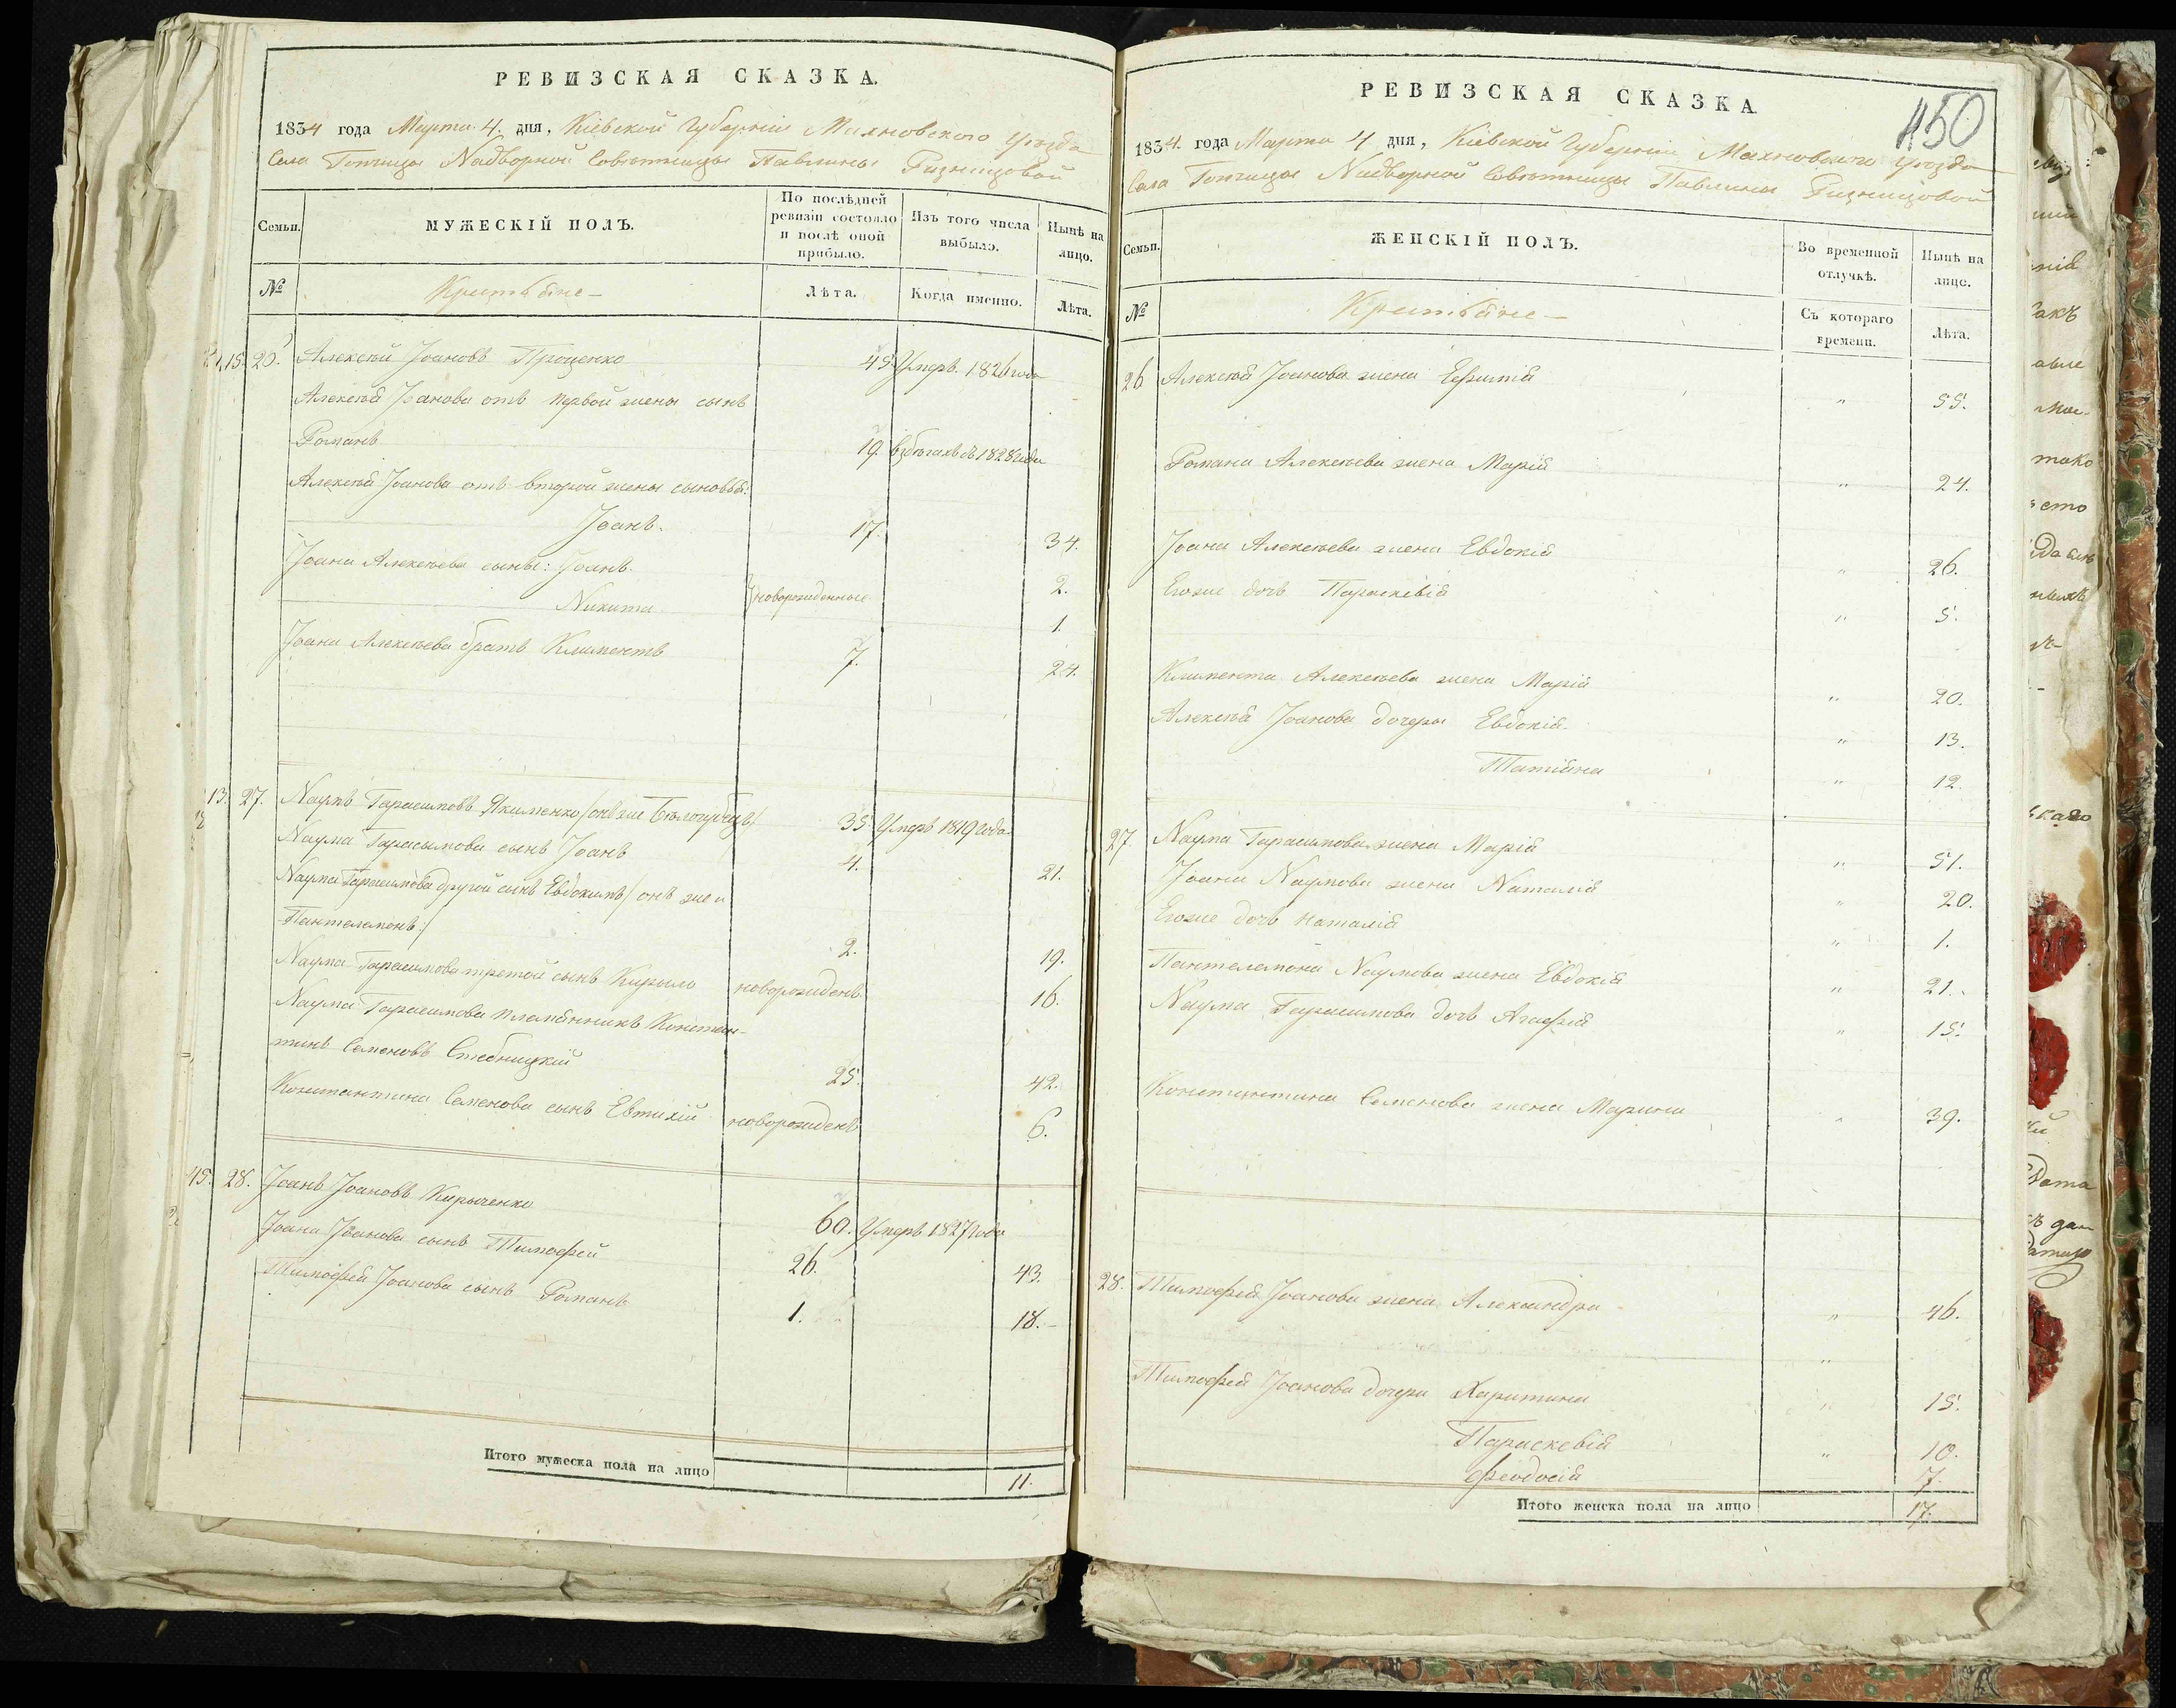 РЕВИЗСКАЯ СКАЗКА.
1834 года Марта 4. дня, Кіевской Губерніи Махновского Уезда
Села Топчищи Надворной Совѣтницы Павлины Ризницовой
Семьи.
МУЖЕСКІЙ ПОЛЪ.
По послѣдней ревизіи состояло и послѣ оной прибыло.
Изъ того числа выбыло.
Нынѣ на лицо.
№
Крестьяне
Лѣта.
Когда именно.
Лѣта.
15. 26. Алексѣй Іоановъ Проценко 45. Умеръ 1826 года
Алексѣя Іоанова отъ первой жены сынъ
Романъ 19. въ бѣгахъ съ 1828 года
Алексѣя Іоанова отъ второй жены сыновья:
Іоанъ. 17. 34.
Іоана Алексѣева сыны: Іоанъ. 2.
Никита новорожденные 1.
Іоана Алексѣева братъ Климентъ 7. 24.
13. 27. Наумъ Гарасимовъ Якименко /онъ же Бѣлогубецъ/ 35. Умеръ 1819 года
Наума Гарасимова сынъ Іоанъ 4. 21.
Наума Гарасимова другой сынъ Евдокимъ / онъ же и
Пантелемонъ / 2. 19.
Наума Гарасимова третой сынъ Кирыло новорожденъ 16.
Наума Гарасимова племянникъ Констан-
тинъ Семеновъ Стебницкій 25. 42.
Константина Семенова сынъ Евтихій новорожденъ 6.
45. 28. Іоанъ Іоановъ Кирыченко 60. Умеръ 1827 года
Іоана Іоанова сынъ Тимофей 26. 43.
Тимофея Іоанова сынъ Романъ 1. 18.
Итого мужеска пола на лицо 11.
РЕВИЗСКАЯ СКАЗКА.
450
1834. года Марта 4 дня, Кіевской Губерніи Махновского Уезда
Села Топчищи Надворной Совѣтницы Павлины Ризницовой
Семьи.
ЖЕНСКІЙ ПОЛЪ.
Во временной отлучкѣ.
Нынѣ на лице.
№
Крестьяне
Съ котораго времени.
Лѣта.
26 Алексѣя Іоанова жена Ефимія " 55.
Романа Алексѣева жена Марія " 24.
Іоана Алексѣева жена Евдокія " 26.
Егоже дочь Параскевія " 5.
Климента Алексѣева жена Марія " 20.
Алексѣя Іоанова дочеры Евдокія " 13.
Татіяна " 12.
27. Наума Гарасимова жена Марія " 51.
Іоана Наумова жена Наталія " 20.
Егоже дочь Наталія " 1.
Пантелемона Наумова жена Евдокія " 21.
Наума Гарасимова дочь Агафія " 15.
Константина Семенова жена Марина " 39.
28. Тимофея Іоанова жена Александра " 46.
Тимофея Іоанова дочери Харитина " 15.
Параскевія " 10.
Феодосія 7.
Итого женска пола на лицо 17.